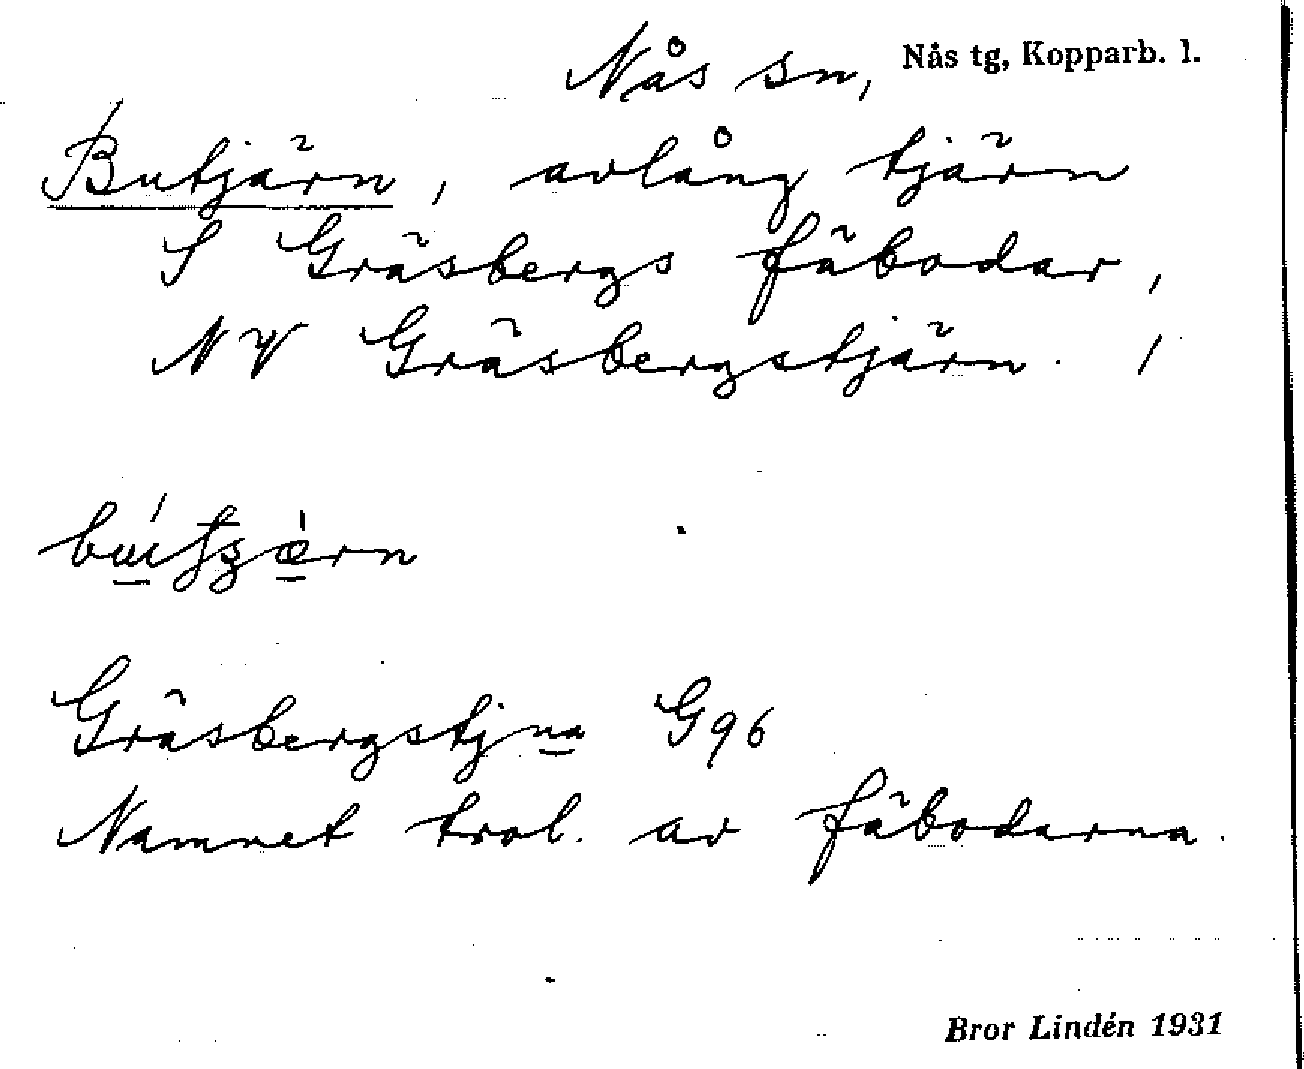 Nås sn, Nås tg, Kopparb. l.
Butjärn, avlång tjärn
S Gräsbergs fäbodar,
NV Gräsbergstjärn.
Gräsbergstjna G96
Namnet trol. av fäbodarna.
Bror Lindén 1931